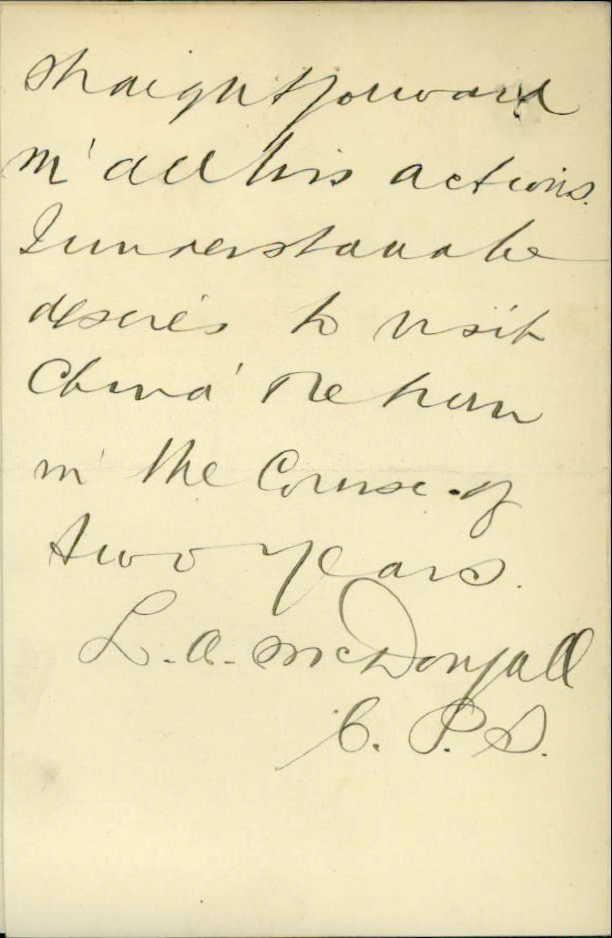 straightforward
in all his actions.
I understand he
desires to visit
China & return
in the course of
two years.
L. A. McDougall
C. P. S.